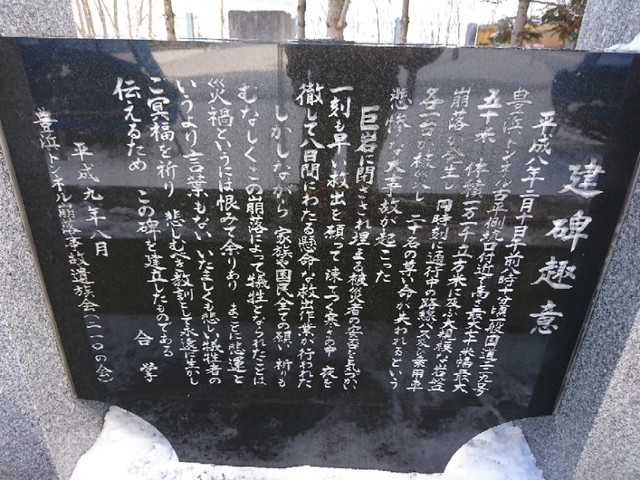 建碑趣意
平成八年二月十日午前八時十分頃一般国道二二九号
豊浜トンネル古平側坑口付近で高さ最大七十米幅最大
五十米 体積一万一千立方米に及ぶ大規模な岩盤
崩落が発生し 同時刻に通行中の路線バス及び乗用車
各一台が被災し 二十名の尊い命が失われるという
悲惨な大事故が起こった
巨岩に閉ざされ埋まる被災者の安否を気づかい
一刻も早い救出を願って凍てつく寒さの中 夜を
徹して八日間にわたる懸命な救出作業が行われた
しかしながら 家族や国民全ての願い祈りも
むなしくこの崩落によって犠牲となられたことは
災禍というには恨みて余りあり まことに悲運と
いうより言葉もない いたましくも悲しい犠牲者の
ご冥福を祈り 悲しむべき教訓として永遠に生かし
伝えるため この碑を建立したものである
合掌
平成九年八月
豊浜トンネル崩落事故遺族会(二一〇の会)